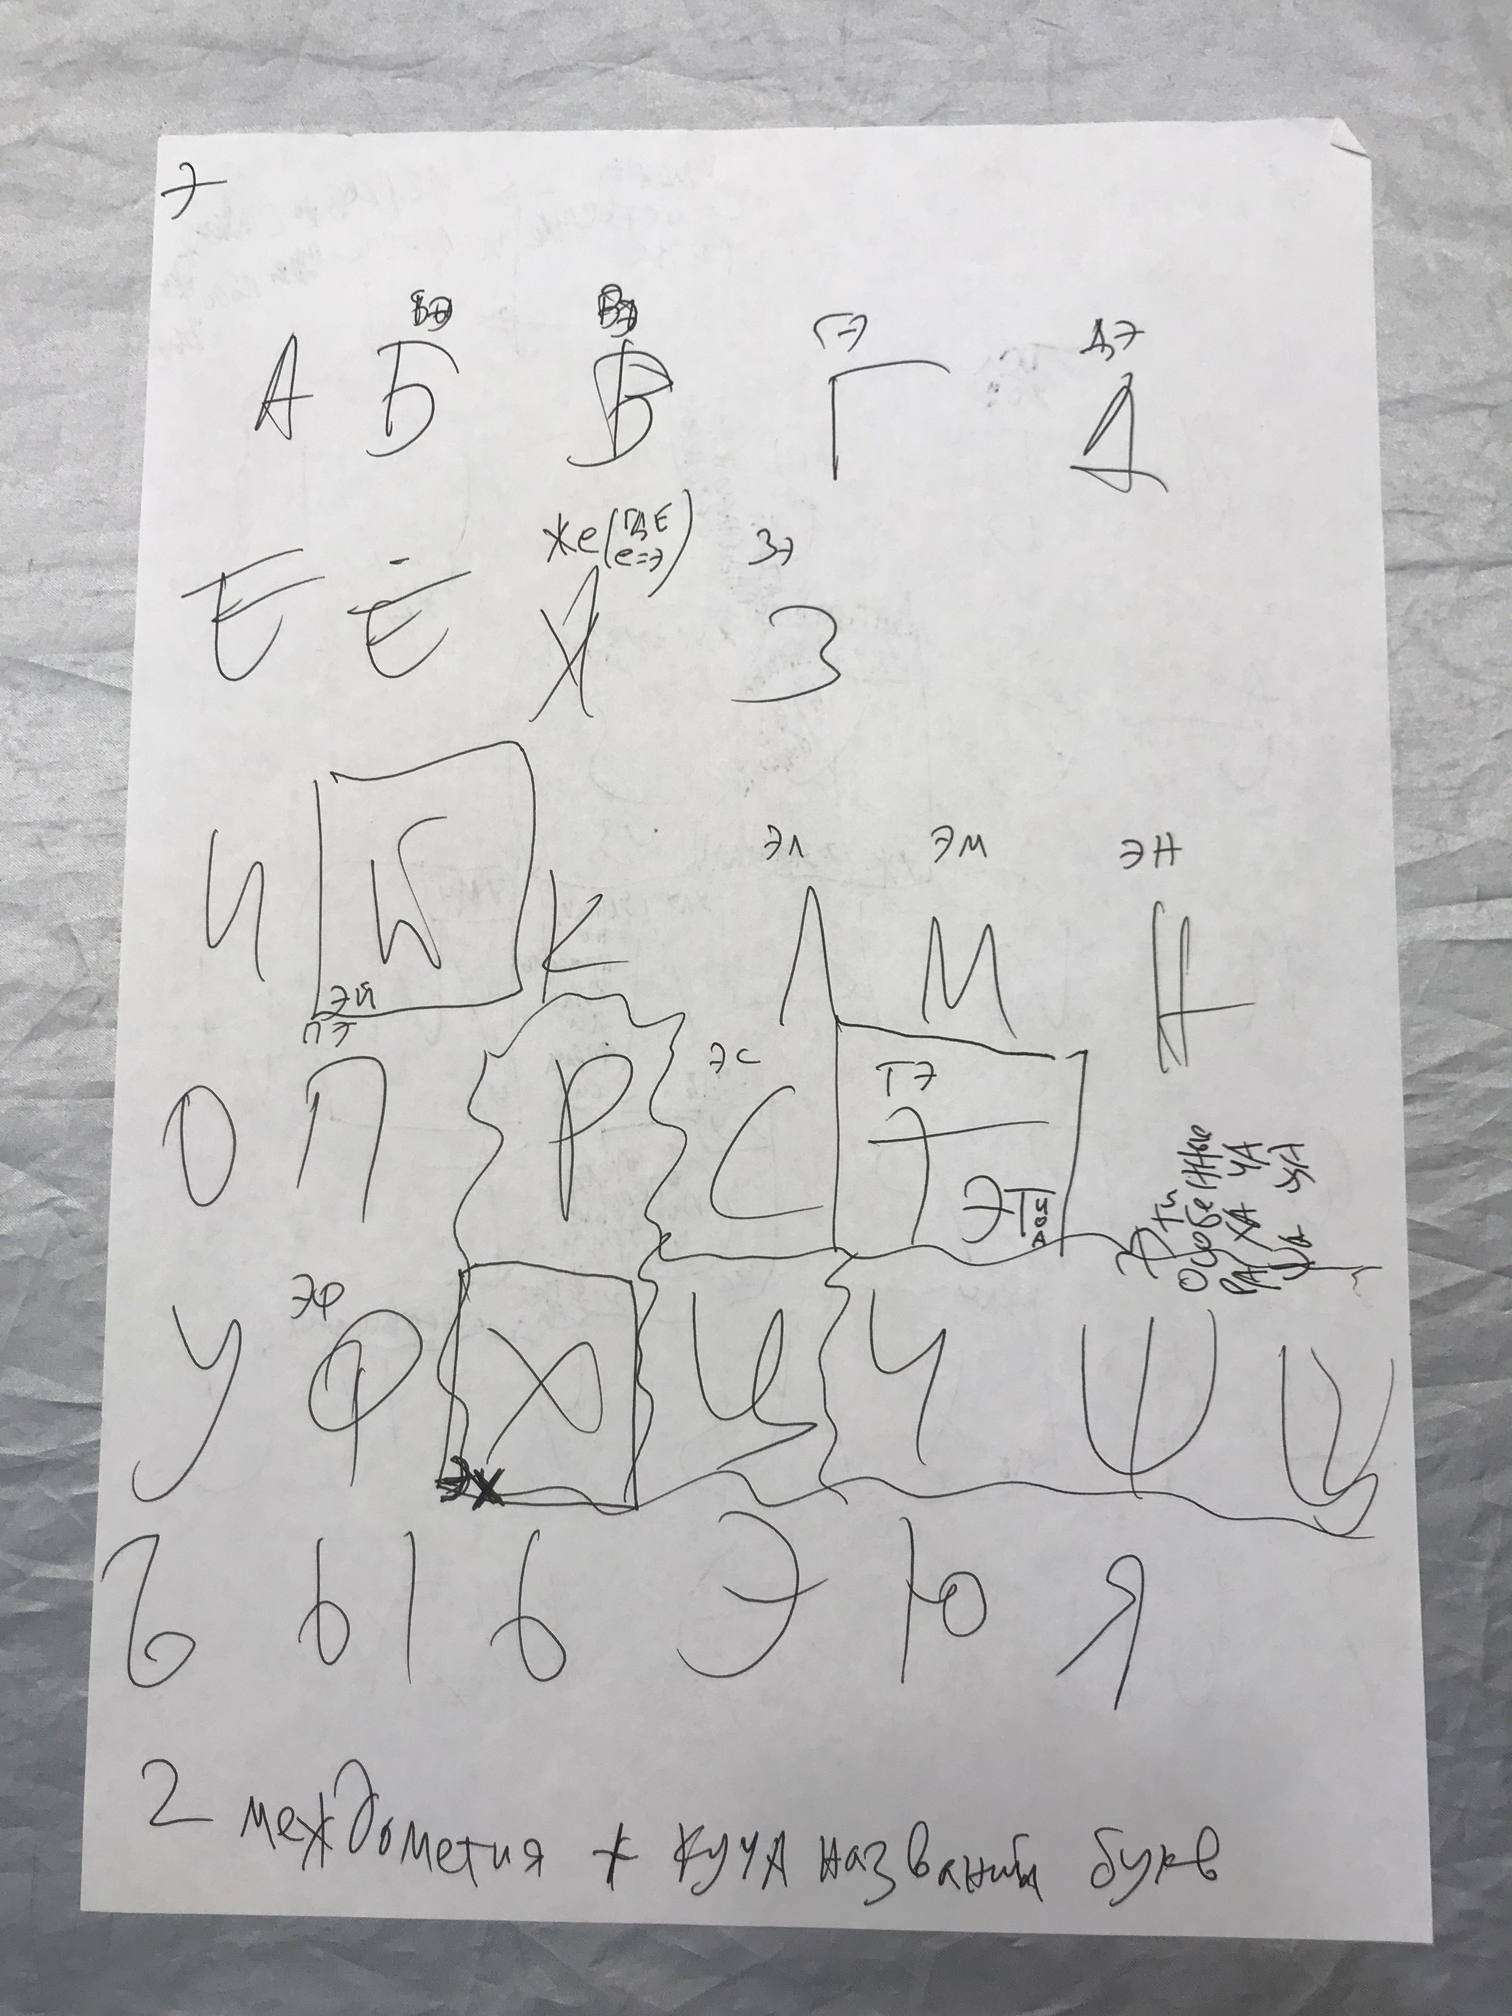 Э
БЭ ВЭ ГЭ ДЭ
А Б В Г Д
Же (ГДЕ е=э) ЗЭ
Е Ё Ж З
ЭЛ ЭМ ЭН
И Й К Л М Н
ЭЙ
ПЭ ЭС ТЭ
О П Р С Т
ЭТ
Эти
Особенные
РА ХА ЧА
ЭФ
У Ф Х Ц Ч Ш Щ
ЭХ
Ъ Ы Ь Э Ю Я
2 междометия + куча названий букв